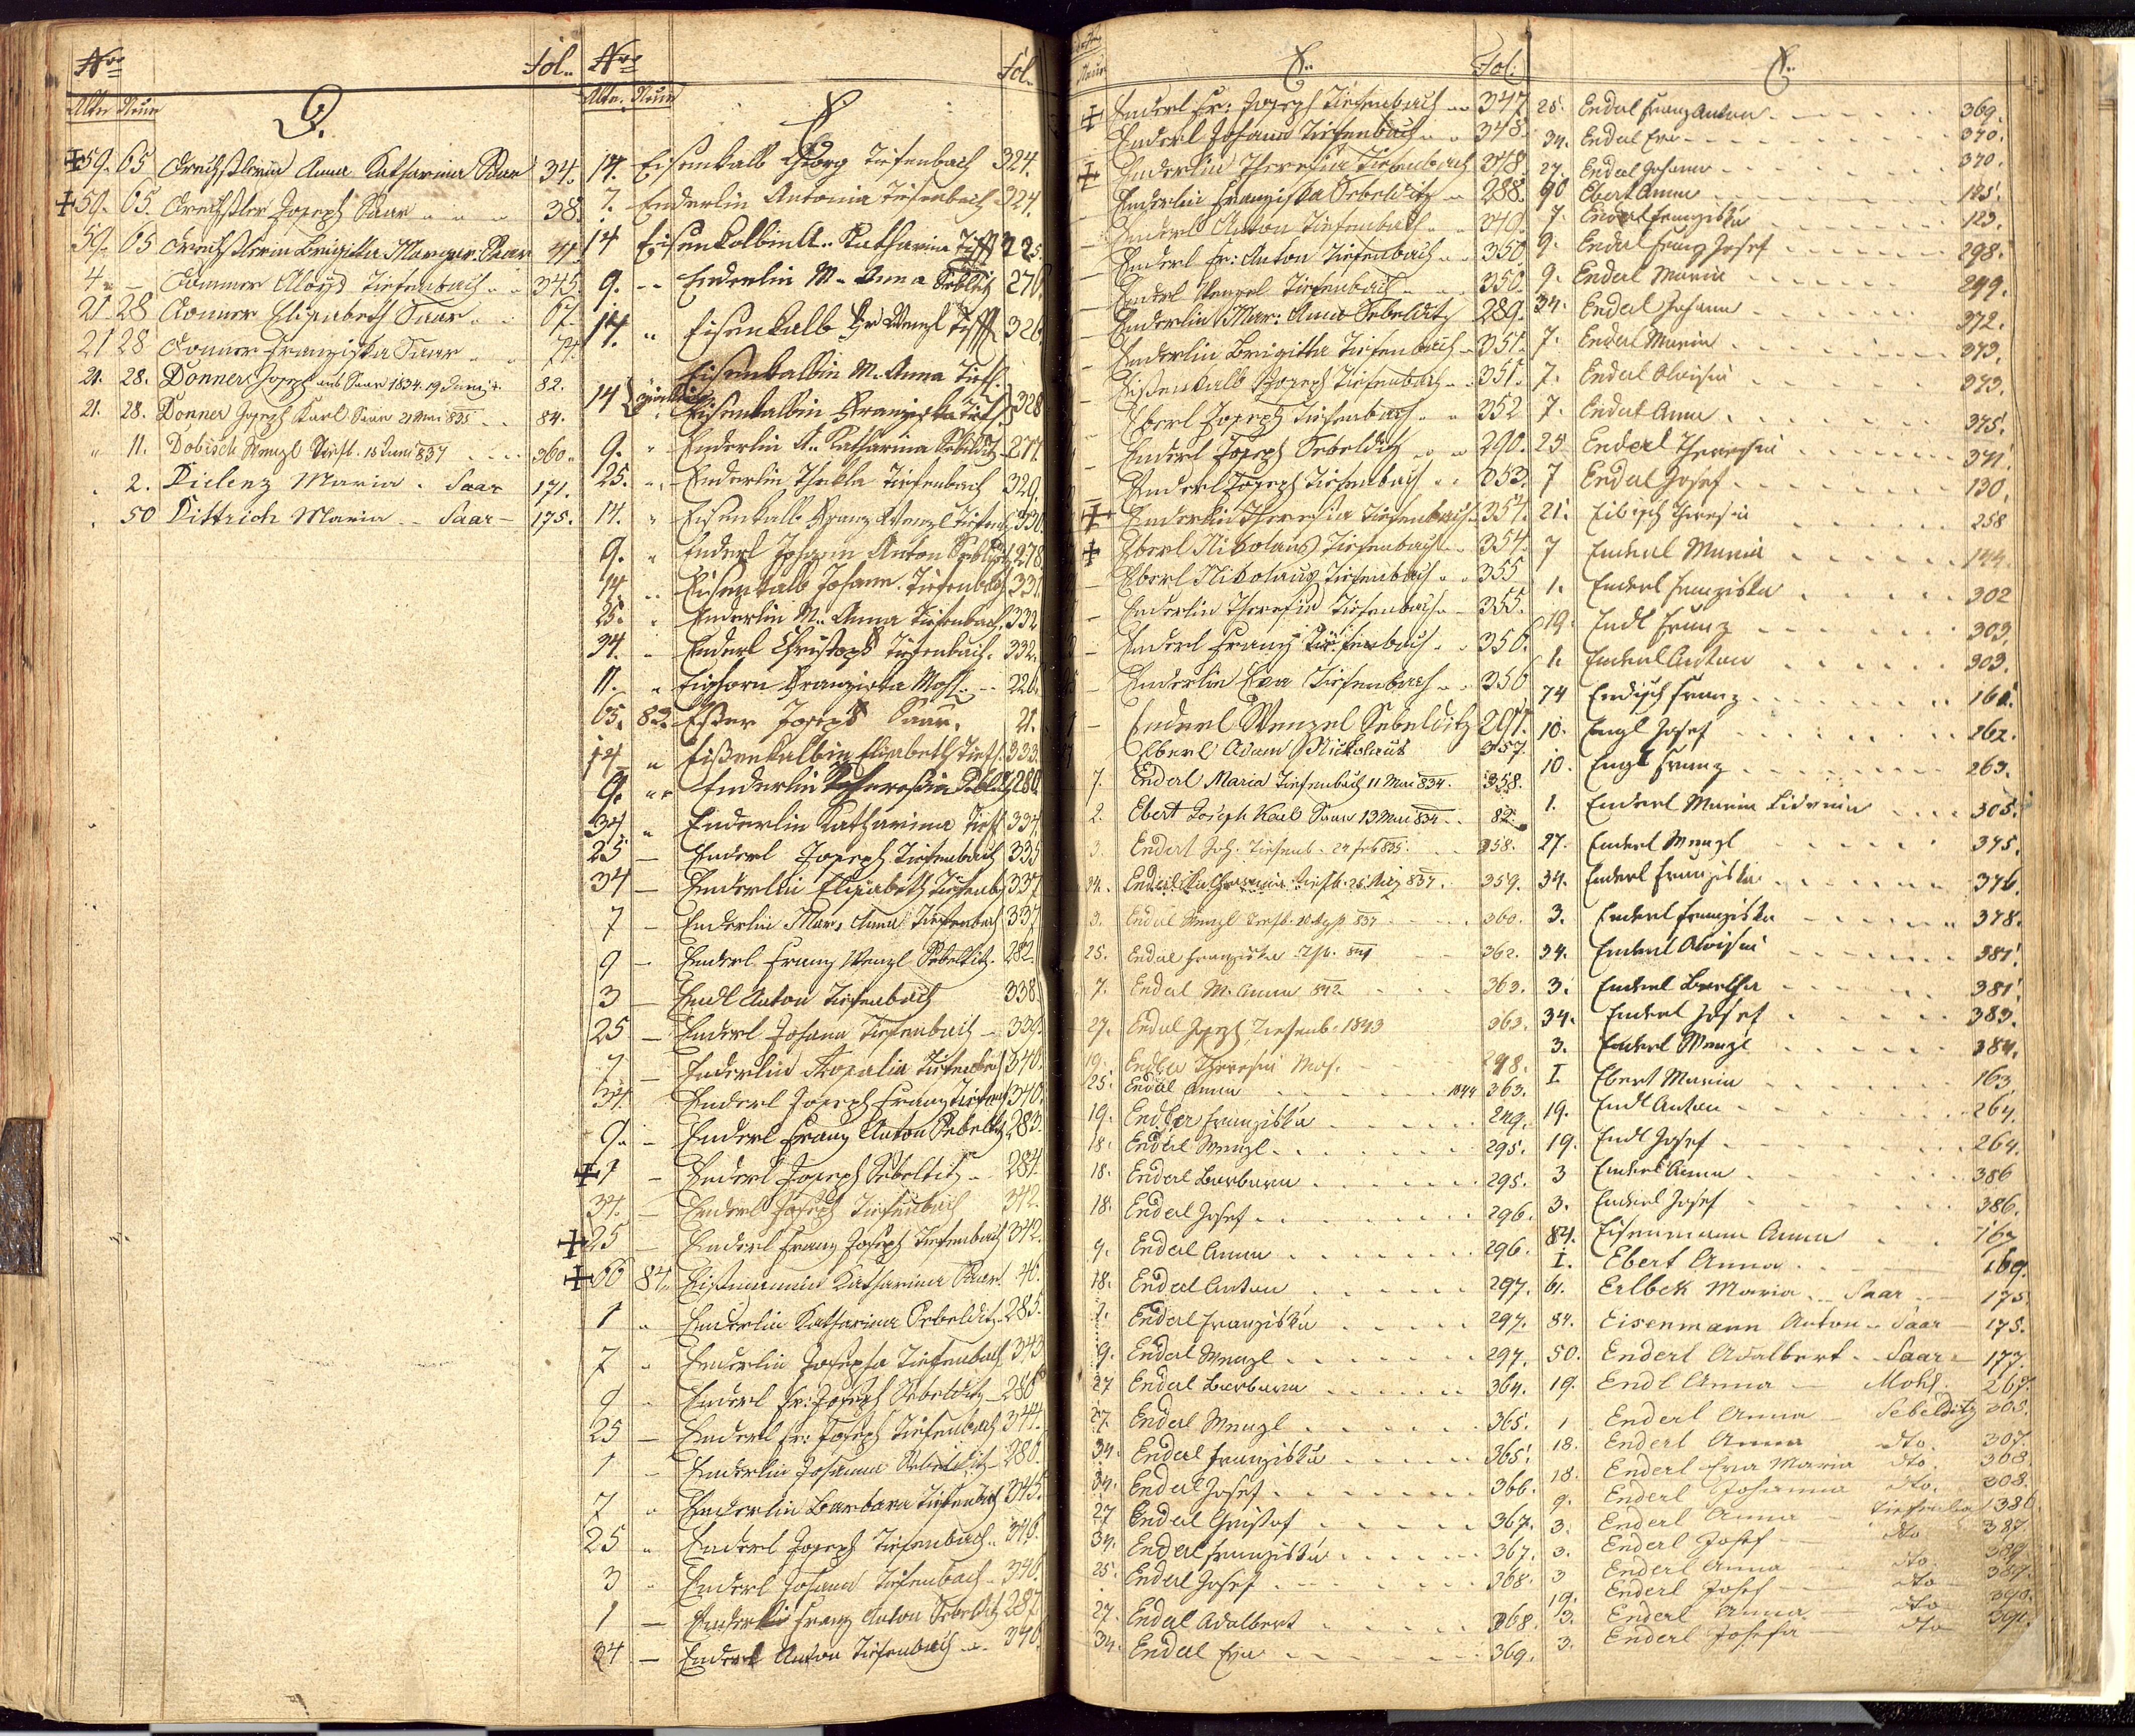 Nro Fol.
Alte Neue
D.
59. 65 Drechßlerin Anna Katharina Saar 34.
59. 65. Drechßler Joseph Saar 38.
59. 65 Drechßlerin Brigitta Margar: Saar 41.
4 — Donner Aloys Tiefenbach 345.
21 28 Donner Elisabeth Saar 67.
21 28 Donner Franziska Saar 71.
21. 28. Donner Joseph aus Saar 1834. 19 Juni 82.
21. 28. Donner Joseph Karl Saar 21 Mai 835 84.
" 11. Dobisch Wenzl Tiefb. 18 Juni 837 360.
. 2. Dielenz Maria . Saar 171.
. 50 Dittrich Maria .. Saar — 175.
Nro Fol.
Alte. Neue
E
14. Eisenkalb Georg Tiefenbach 324.
7. Enderlin Antonia Tiefenbach 324.
14 Eisenkolbin A.. Katharina Tieff 325.
9. Enderlin M.. Anna Seblitz 276.
14. " Eisenkalb Wenzl Tieff 326.
Eisenkalbin M. Anna Tief.
14 Eisenkalbin Franziska Tief. 328
9. " Enderlin A.. Katharina Sebelditz 277.
25. " Enderlin Thekla Tiefenbach 329.
14. " Eisenkalb Franz Wenzl Tiefen 330.
9. " Enderl Johann Anton Sebldiz 278.
14. " Eisenkalb Johann. Tiefenbach 331.
25. " Enderlin M.. Anna Tiefenbach 332
34. " Enderl Christoph Tiefenbach. 332.
11. " Eighorn Franziska Mohl 226.
65. 83. Ester Joseph Saar. 21.
14 " Eißenkalbin Elisabeth Tief. 333.
9. " Enderlin Theresia Seblitz 280.
34. " Enderlin Katharina Tief. 334.
25 — Enderl Joseph Tiefenbach 335
34 — Enderlin Elisabeth Tiefenb. 337
7 — Enderlin Mar: Anna Tiefenbach 337
9 — Enderl Franz Wenzl Sebeltitz. 282.
3 — Endl Anton Tiefenbach 338.
25 — Enderl Johann Tiefenbach — 339.
7 — Enderlin Rosalia Tiefenbach 340.
34. Enderl Joseph Franz Tiefenb 340.
9. — Enderl Franz Anton Sebeltitz 283.
1 — Enderl Joseph Sebeltitz — 284.
34. — Enderl Joseph Tiefenbach 342.
25 — Enderl Franz Joseph Tiefenbach 342.
66 84. Eißmannin Katharina Saar. 40.
1 " Enderlin Katharina Sebelditz 285.
7 " Enderlin Josepha Tiefenbach 343
9 " Enderl Fr: Joseph Sebelditz — 286
25 — Enderl Fr: Joseph Tiefenbach 344.
1 — Enderlin Johanna Sebelditz — 286.
7 " Enderlin Barbara Tiefenbach 345.
25 " Enderl Joseph Tiefenbach 346.
3 " Enderl Johann Tiefenbach — 346.
1 — Enderl Franz Anton Sebelditz 287.
34 — Enderl Anton Tiefenbach 346.
E. Fol:
Enderl Fr: Joseph Tiefenbach 347
Enderl Johann Tiefenbach 348.
Enderlin Theresia Tiefenbach 348.
Enderlin Franziska Sebelditz 288.
Enderl Anton Tiefenbach 349.
Enderl Fr: Anton Tiefenbach 350
Enderl Wenzel Tiefenbach 350.
Enderlin Mar: Anna Sebelditz 289.
Enderlin Brigitta Tiefenbach 351.
Eißenkalb Joseph Tiefenbach 351.
Eberl Joseph Tiefenbach 352
Enderl Joseph Sebelditz 290.
Enderl Joseph Tiefenbach 353.
Enderlin Theresia Tiefenbach 354.
Eberl Nikolaus Tiefenbach 354.
Eberl Nikolaus Tiefenbach 355
Enderlin Theresia Tiefenbach 355.
Enderl Franz Tiefenbach 356.
Enderlin Eva Tiefenbach 356
Enderl Wenzel Sebelditz 291.
Eberl Adam Nickolaus 357.
7. Enderl Maria Tiefenbach 11 Mai 834. 358.
2. Ebert Joseph Karl Saar 13 Mai 834. 82.
3. Enderl Joh. Tiefenb. 24 Feb 835. 358.
34. Enderl Katharina Tiefb. 25 837. 359.
3. Enderl Wenzl Tiefb. 837 360.
25. Enderl Franziska 362.
7. Enderl M. Anna 842 363.
27. Enderl Joseph Tiefenb. 1843 363.
19. Endler Theresia Moh. 248.
25. Enderl Anna 1844 363.
19. Endler Franziska 249.
18. Enderl Wenzl 295.
18. Enderl Barbara 295.
18. Enderl Josef 296.
9. Enderl Anna 296.
18. Enderl Anton 297.
1. Enderl Franziska 297.
9. Enderl Wenzl 297.
27 Enderl Barbara 364.
27. Enderl Wenzl 365.
34. Enderl Franziska 365.
34. Enderl Josef 366.
27 Enderl Christof 367.
34. Enderl Franziska 367.
25. Enderl Josef 368.
27. Enderl Adalbert 368.
34. Enderl Eva 369.
E.
25. Enderl Franz Anton 369.
34. Enderl Eva 370.
27. Enderl Johann 370.
90 Ebert Anna 125.
7. Enderl Franziska 123.
9. Enderl Franz Josef 298.
9. Enderl Maria 299.
34. Enderl Johann 372.
7. Enderl Maria 373.
7. Enderl Aloisia 373.
7. Enderl Anna 375.
25 Enderl Theresia 371.
7 Enderl Josef 130.
21. Eibisch Theresia 258
7 Enderl Maria 144.
1. Enderl Franziska 302
19. Endl Franz 303.
1. Enderl Anton 303.
74 Endisch Franz 161.
10. Engl Josef 262.
10. Engl Franz 263.
1. Enderl Maria Lidmila 305.
27. Enderl Wenzl 375.
34. Enderl Franziska 376.
3. Enderl Franziska 378.
34. Enderl Aloisia 381.
3. Enderl Bertha 381.
34. Enderl Josef 383.
3. Enderl Wenzl 384.
I. Ebert Maria 163
19. Endl Anton 264.
19. Endl Josef 264.
3 Enderl Anna 386
3. Enderl Josef 386.
84. Eisenmann Anna 167
I. Ebert Anna 169.
61. Erlbek Maria .. Saar — 175
84. Eisenmann Anton .. Saar — 175.
50. Enderl Adalbert .. Saar — 177.
19. Endl Anna — Mohl. 267.
1 Enderl Anna — Sebelditz 305.
18. Enderl Anna dto. 307.
18. Enderl Eva Maria dto. 308.
9. Enderl Johanna dto. 308.
3. Enderl Anna — Tiefenba 386.
3. Enderl Josef — dto 387.
3 Enderl Anna — dto 389.
19. Enderl Josef — dto 389.
3. Enderl Anna — dto 390.
3. Enderl Josefa — dto 391.